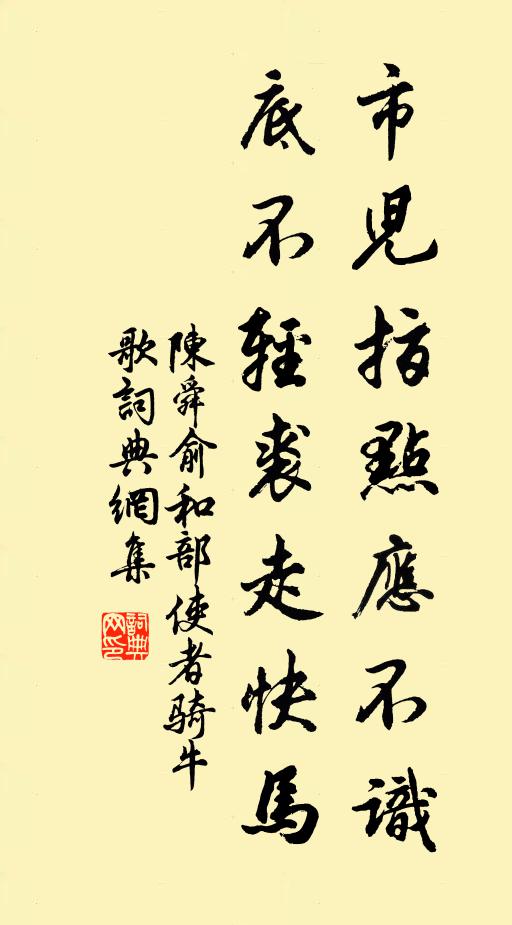 市児指點應不識
底不輕裘走快馬
陳舜俞和部使者骑牛
歌詞典網集
詞典网印